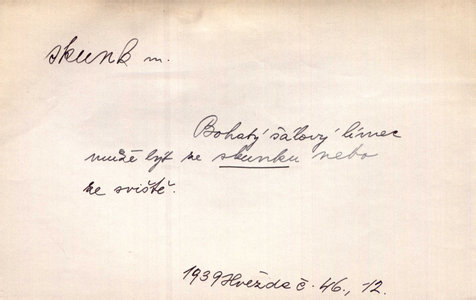 skunk m.
Bohatý šálový límec
může být ze skunku nebo
ze sviště.
1939 Hvězda č. 46., 12.